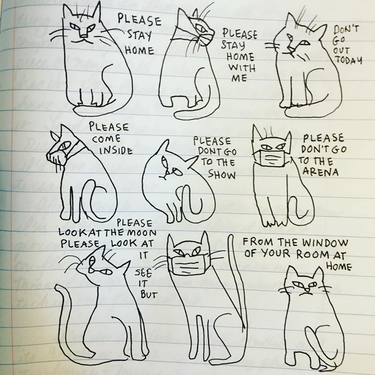 PLEASE
STAY
HOME
PLEASE
STAY
HOME
WITH
ME
DON'T
GO
OUT
TODAY
PLEASE
COME
INSIDE
PLEASE
DONT GO
TO THE
SHOW
PLEASE
DON'T GO
TO THE
ARENA
PLEASE
LOOK AT THE MOON
PLEASE LOOK AT
IT
SEE
IT
BUT
FROM THE WINDOW
OF YOUR ROOM AT
HOME